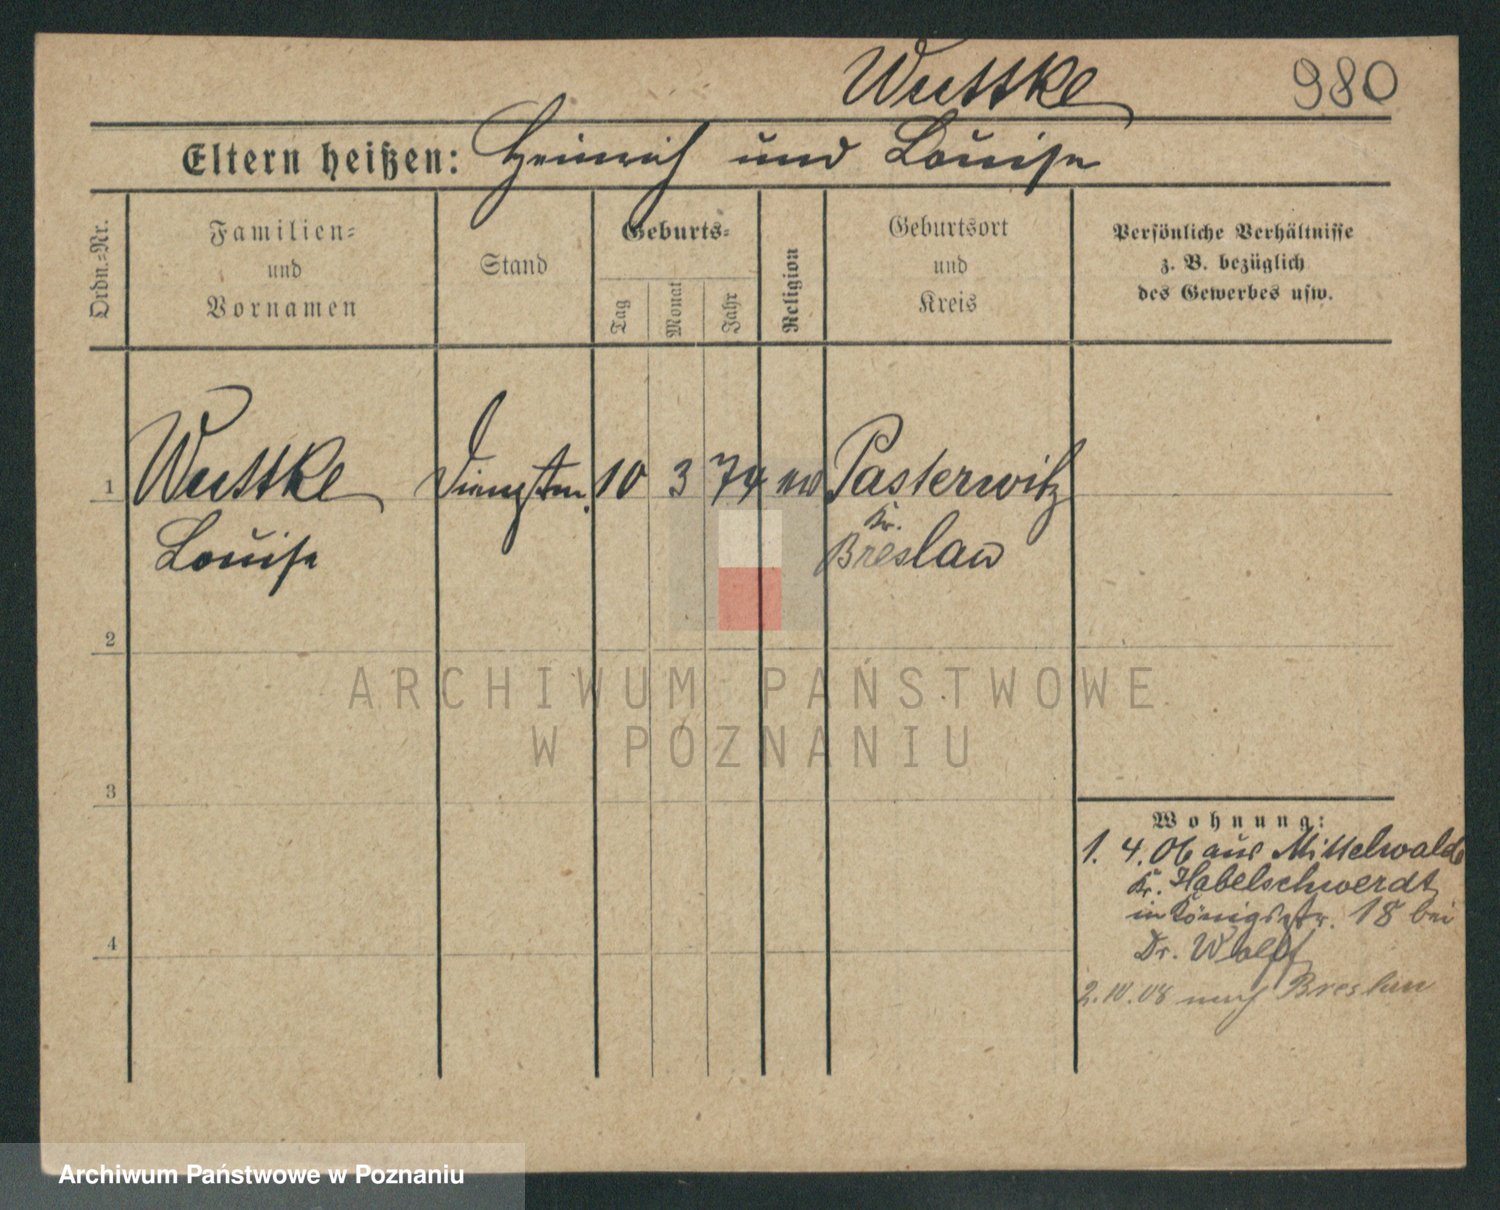 Wuttke 980
Eltern heißen: Heinrich und Louise
Ordn.-Nr.
Familien-
und
Vornamen
Stand
Geburts-
Tag
Monat
Jahr
Religion
Geburtsort
und
Kreis
Persönliche Verhältnisse
z. B. bezüglich
des Gewerbes usw.
1 Wuttke 10 3 74 Pasterwitz
Louise
Kr.
Breslau
2
3
4
Wohnung:
1. 4. 06 aus Mittelwalde
Kr. Habelschwerdt
in Königsstr. 18 bei
Dr. Wolff
2.10.08 nach Breslau
ARCHIWUM PAŃSTWOWE
W POZNANIU
Archiwum Państwowe w Poznaniu